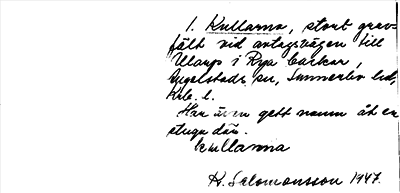 1. Kullarna, stort grav-
fält vid avtagsvägen till
Ullarp i Rya backar,
Össjö
Luggude hd,
Krb. l.
Har även gett namn åt en
stuga där.
Kullarna
K. Salomonsson 1947.